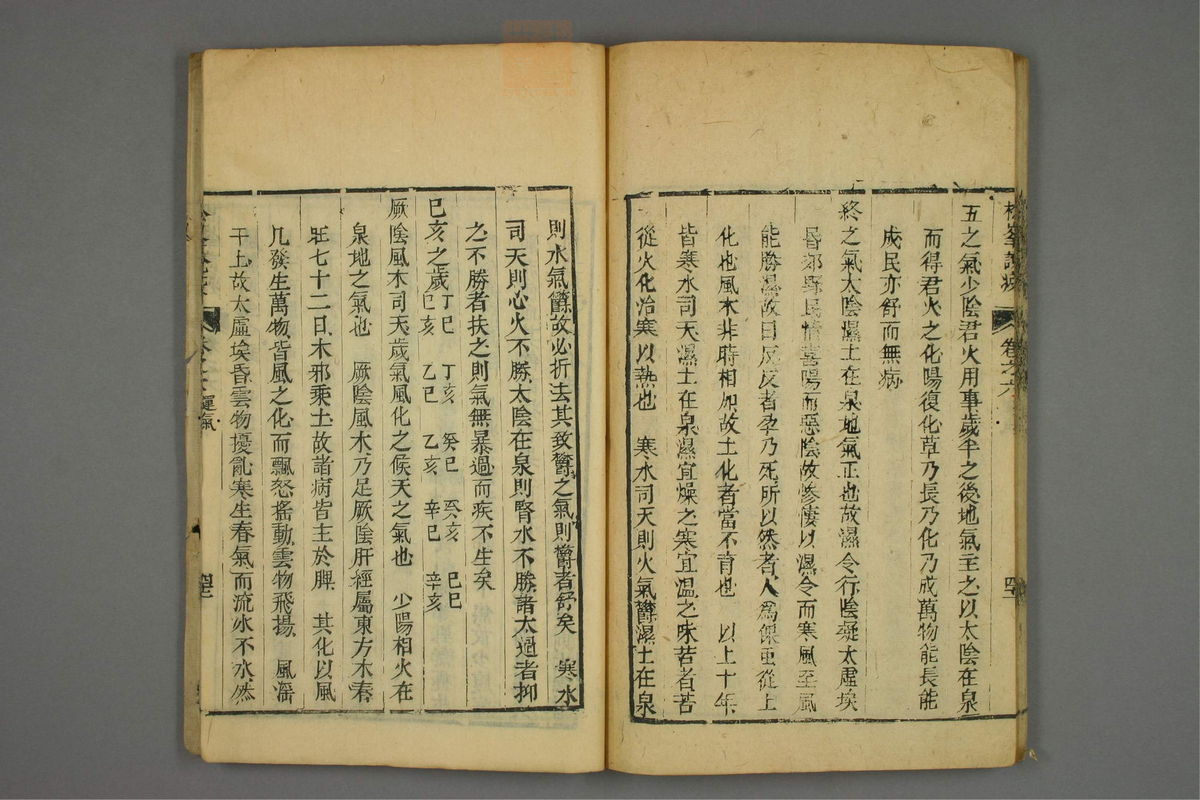 五之氣少陰君火用事歲半之後地氣主之以太陰在泉
而得君火之化陽復化草乃長乃化乃成萬物能長能
成民亦舒而無病
終之氣太陰濕土在泉地氣正也故濕令行陰凝太虛埃
昏郊野民情喜陽而惡陰故慘悽以濕令而寒風至風
能勝濕故曰反反者孕乃死所以然者人為倮虫從土
化也風木非時相加故土化者當不育也　以上十年
皆寒水司天濕土在泉濕宜燥之寒宜温之味苦者苦
從火化治寒以熱也　寒水司天則火氣欝濕土在泉
則水氣欝故必折去其致欝之氣則欝者舒矣　寒水
司天則心火不勝太陰在泉則腎水不勝諸太過者抑
之不勝者扶之則氣無暴過而疾不生矣
巳亥之歲丁巳　丁亥　癸巳　癸亥　己巳
己亥　乙巳　乙亥　辛巳　辛亥
厥陰風木司天歲氣風化之候天之氣也　少陽相火在
泉地之氣也　厥陰風木乃足厥陰肝經屬東方木春
旺七十二日木邪乘土故諸病皆主於脾　其化以風
凡發生萬物皆風之化而飄怒搖動雲物飛揚　風淫
于上故太虛埃昏雲物擾亂寒生春氣而流水不冰然
松峯說疫　卷之六　四三
卷之六　運氣